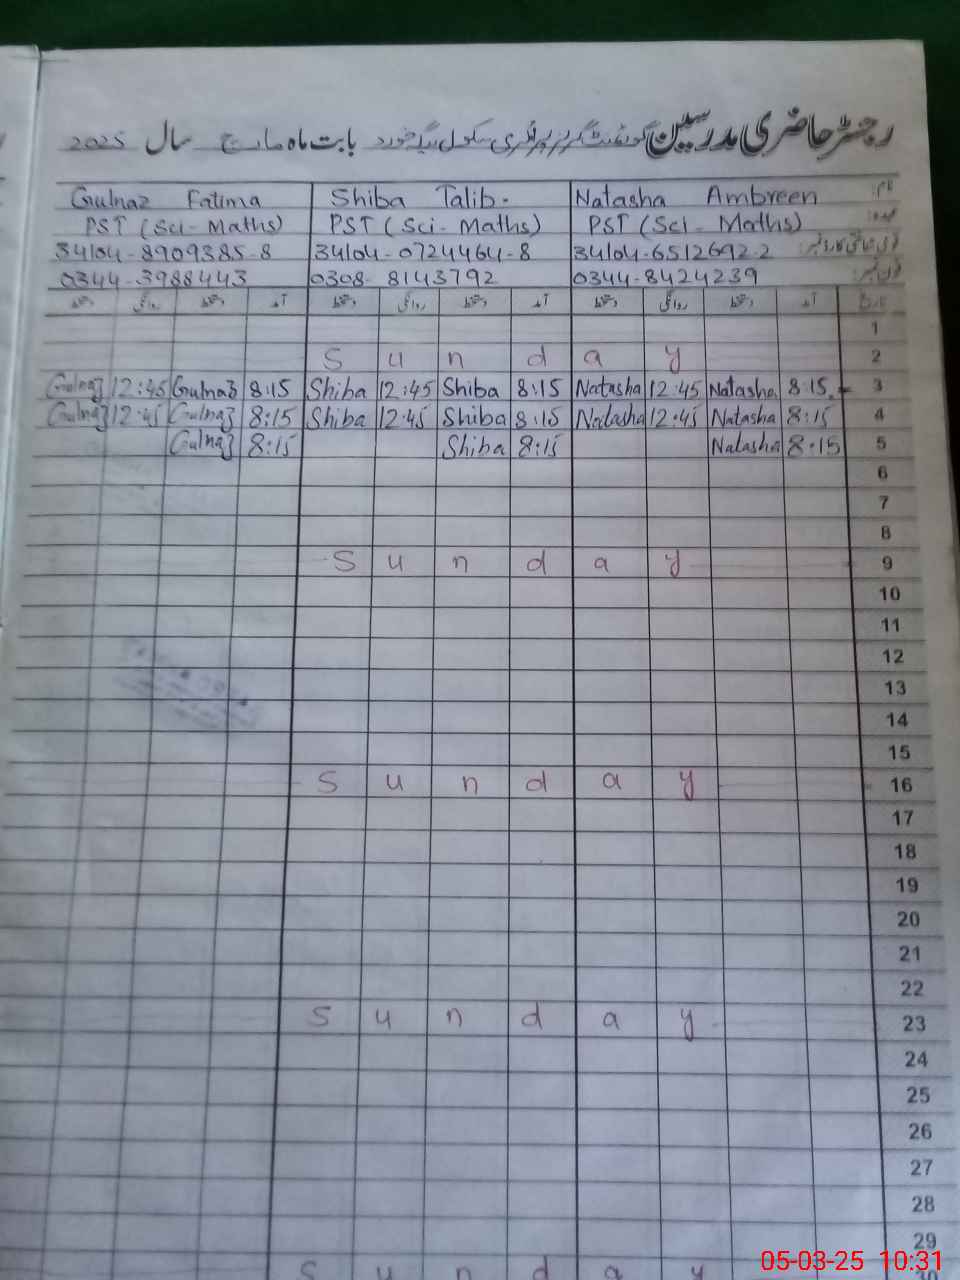 رجسٹر حاضری مدرسین گورنمنٹ گرلز پرائمری سکول خورد بابت ماہ مارچ سال 2025
Gulnaz Fatima Shiba Talib. Natasha Ambreen نام:
PST (Sci- Maths) PST (Sci- Maths) PST (Sci- Maths) عہدہ:
34104-8909385-8 34104-0724464-8 34104-6512692-2 قومی شناختی کارڈ نمبر:
0344-3988443 0308-8143792 0344-8424239 فون نمبر:
دستخط روانگی دستخط آمد دستخط روانگی دستخط آمد دستخط روانگی دستخط آمد تاریخ
1
S u n d a y 2
Gulnaz 12:45 Gulnaz 8:15 Shiba 12:45 Shiba 8:15 Natasha 12:45 Natasha 8:15 3
Gulnaz 12:45 Gulnaz 8:15 Shiba 12:45 Shiba 8:15 Natasha 12:45 Natasha 8:15 4
Gulnaz 8:15 Shiba 8:15 Natasha 8:15 5
6
7
8
S u n d a y 9
10
11
12
13
14
15
S u n d a y 16
17
18
19
20
21
22
S u n d a y 23
24
25
26
27
28
29
S u n d a y 30
05-03-25 10:31